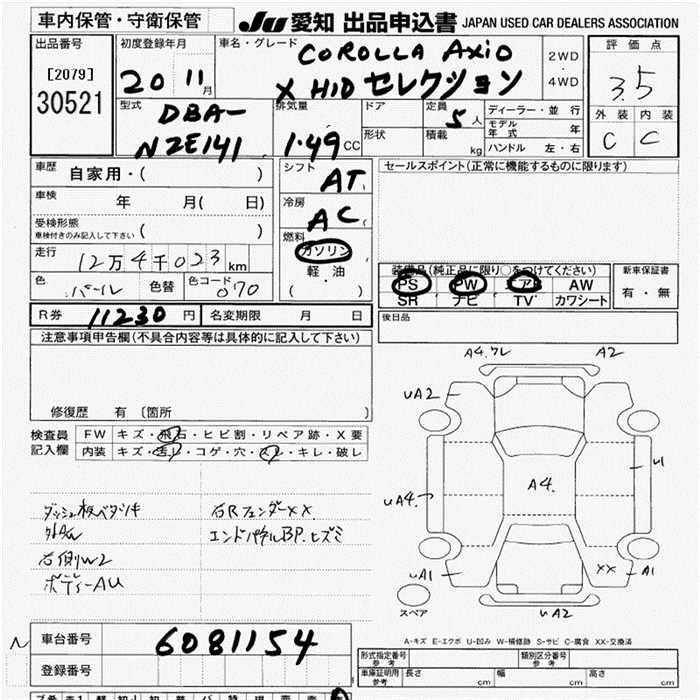 車内保管・守衛保管
JU 愛知 出品申込書 JAPAN USED CAR DEALERS ASSOCIATION
出品番号
[2079]
30521
初度登録年月
20 11月
車名・グレード
COROLLA AXIO
X HID セレクション
2WD
4WD
評価点
3.5
外装 内装
C C
型式
DBA-
NZE141
排気量
1.49 CC
ドア
形状
定員
5人
積載 kg
ディーラー・並行
モデル年式 年
ハンドル 左・右
車歴
自家用・( )
車検
年 月( 日)
受検形態
車検付きのみ記入して下さい ( )
走行
12万4千023 km
色
パール
色替
色コード
070
シフト
AT
冷房
AC
燃料
ガソリン
軽・油
( )
セールスポイント(正常に機能するものに限ります)
装備品(純正品に限り○をつけてください)
PS PW エアB AW
SR ナビ TV カワシート
新車保証書
有・無
R券 11230 円
名変期限 月 日
後日品
注意事項申告欄(不具合内容等は具体的に記入して下さい)
修復歴 有 〔箇所 〕
検査員
記入欄
FW キズ・飛石・ヒビ割・リペア跡・X要
内装 キズ・汚レ・コゲ・穴・スレ・キレ・破レ
ダッシュ板ベタツキ
外AW
右側W2
ボディーAU
右Rフェンダーxx
エンドパネルBP.ヒズミ
A4.ワレ A2
UA2
U1
A4.
UA4.
UA1
XX A1
UA2
スペア
A-キズ E-エクボ U-凹み W-補修跡 S-サビ C-腐食 XX-交換済
N
車台番号
6081154
登録番号
形式指定番号
参考
類別区分番号
参考
車庫証明用
参考
長さ cm 幅 cm 高さ cm